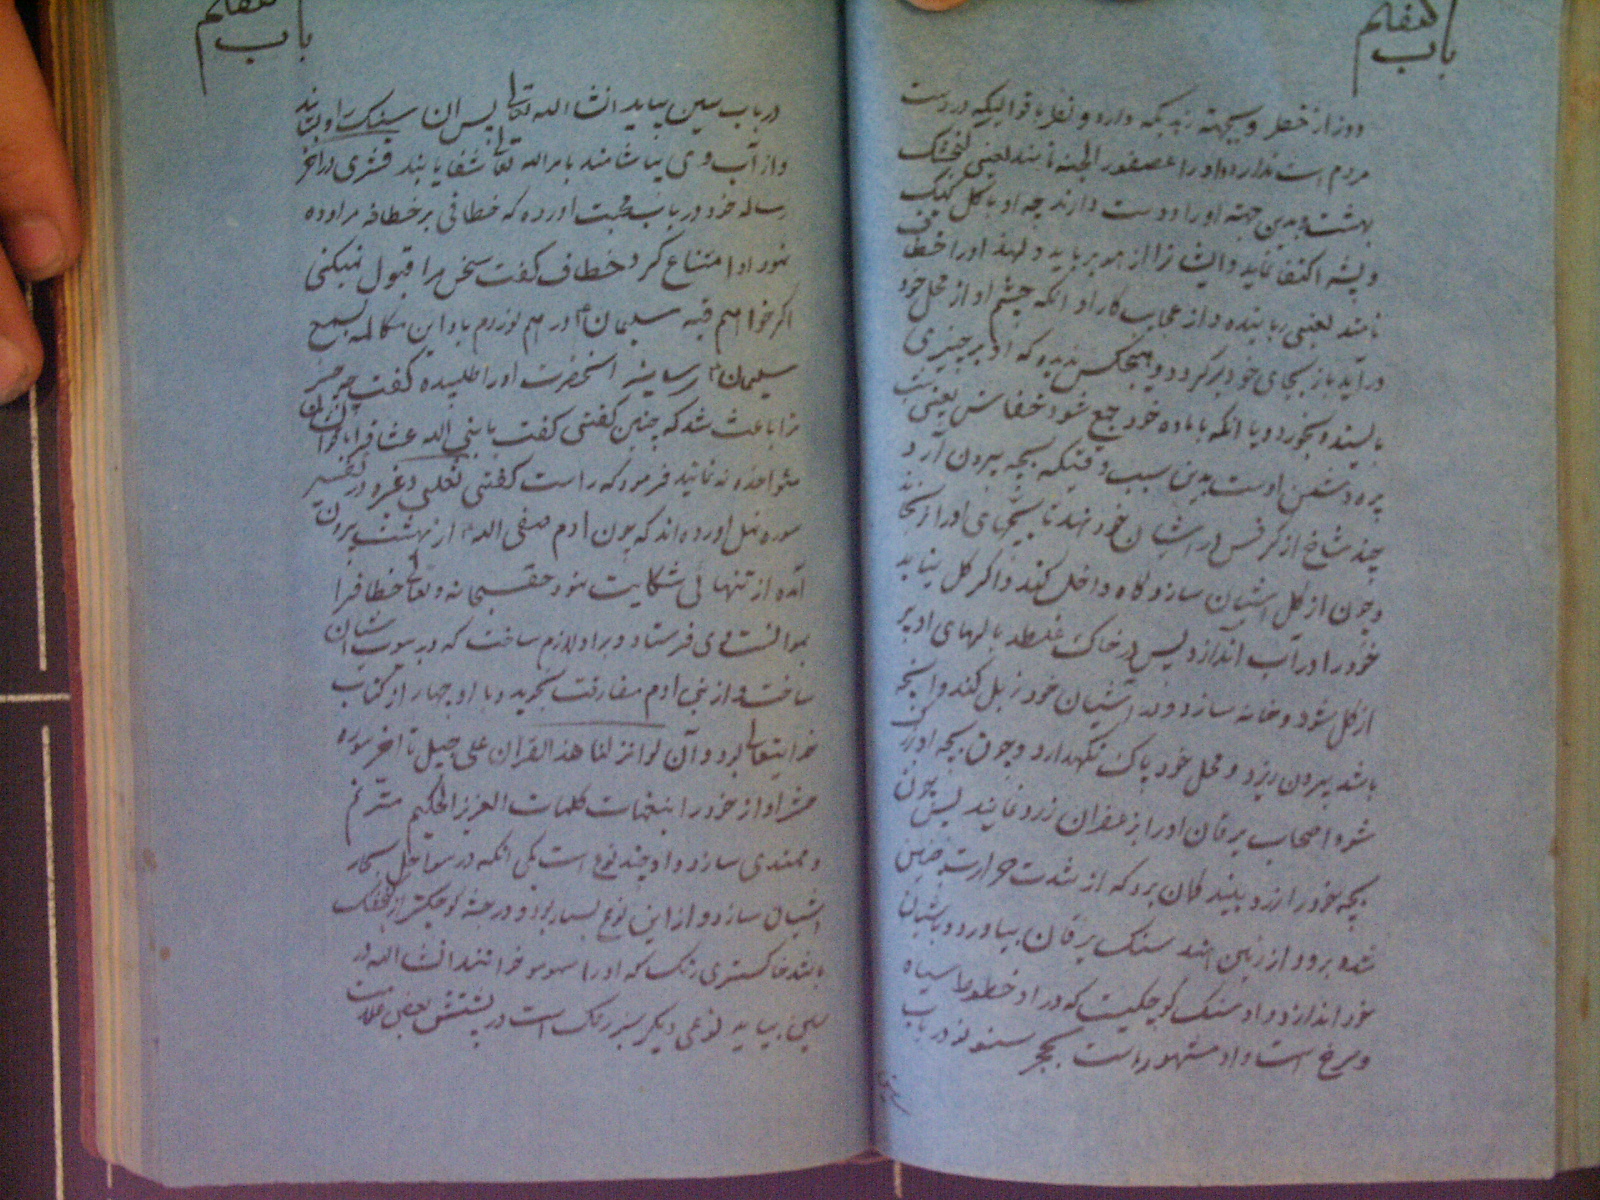 باب هفتم
دور از خطر و سیجهته زندیکه دارد و نظر با قوالیکه در دست
مردم است ندارد و او را عصفور الجنه نامند یعنی کنجشک
بهشت و بدین جهته او را دوست دارند چه او با کل مکس
و پشه اکتفا نماید و ایشانرا از هوا برباید و لهذا او را خطاف
نامند یعنی رباینده و از عجایب کار او انکه چشم او از محل خود
در آید باز بجای خود برکردد و هیچکس ندیده که او بر چیزی
بایستد و بخورد و یا انکه با ماده خود جمع شود خفاش یعنی شب
پره دشمن اوست بدین سبب وقتیکه بچه بیرون آرد
چند شاخ از کرفس در اشیان خود نهد تا بچهای او را نرنجاند
و چون از کل اشیان سازد کاه داخل کند و اکر کل نیابد
خود را در آب اندازد پس در خاک غلطد بالهای او پر
از کل شود و خانه سازد و در آشیان خود زبل نکند و انچه
باشد بیرون ریزد و محل خود پاک نکهدارد و چون بچه او بزرک
شود اصحاب یرقان او را بزعفران زرد نمایند پس چون
بچه خود را زرد بیند کمان برد که از شدت حرارت چنین
شده برود از زمین هند سنک یرقان بیاورد و باشیان
خود اندازد و او سنک کوچکیست که در او خطوط سیاه
و سرخ است و او مشهور است بحجر سنونو در باب
باب هفتم
در باب سین بیاید انشا الله تعالی پس ان سنک او بستانند
و از آب وی بیاشامند بامر الله تعالی شفا یابند قشری در اخر
رساله خود در باب محبت اورده که خطافی بر خطافه مراوده
نمود او امتناع کرد خطاف کفت سخن مرا قبول نمیکنی
اکر خواهم قبه سلیمان در هم نوردم باد این مکالمه بسمع
سلیمان رسانید انحضرت او را طلبیده کفت چه چیز
ترا باعث شد که چنین کفتی کفت یا نبی الله عشاق را باقوالشان
مؤاخذه نه نمائید فرمود که راست کفتی ثعلبی و غیره در تفسیر
سوره نمل اورده‌اند که چون ادم صفی الله از بهشت بیرون
آمد از تنهائی شکایت نمود حقسبحانه و تعالی خطاف را
بموانست وی فرستاد و بر او لازم ساخت که در بیوت اشیان
ساخت و از بنی ادم مفارقت نجوید و با او چهار از کتاب
خدایتعالی بود و آن لو انزلنا هذا القران علی جبل تا اخر سوره
حشر و اواز خود را بنغمات کلمات العزیز الحکیم مترنم
و ممتدی سازد و او چند نوع است یکی انکه در سواحل بحار
اشیان سازد و از این نوع بسیار بود و در جثه کوچکتر از کنجشک
باشد خاکستری رنک که او را سنونو خوانند انشا الله در
سین بیاید نوعی دیکر سبز رنک است در پشتش بعضی علامت